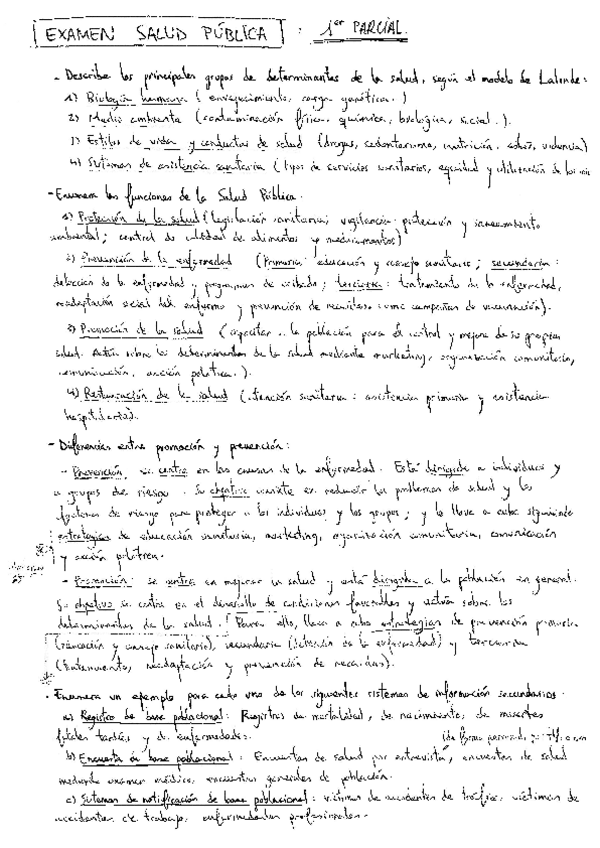 EXAMEN SALUD PÚBLICA : 1er PARCIAL.
- Describe los principales grupos de determinantes de la salud, según el modelo de Lalonde:
1) Biología humana (envejecimiento, carga genética.)
2) Medio ambiente (contaminación física, química, biológica, social.).
3) Estilos de vida y conductas de salud (drogas, sedentarismo, nutrición, violencia)
4) Sistemas de asistencia sanitaria (tipos de servicios sanitarios, equidad y utilización de los
- Enumera las funciones de la Salud Pública.
1) Protección de la salud (legislación sanitaria; vigilancia, protección y saneamiento
ambiental; control de calidad de alimentos y medicamentos)
2) Prevención de la enfermedad (Primaria: educación y consejo sanitario; secundaria:
detección de la enfermedad y programas de cribado; terciaria: tratamiento de la enfermedad,
readaptación social del enfermo y prevención de recaídas como campañas de vacunación).
3) Promoción de la salud (capacitar a la población para el control y mejora de su propia
salud. Actúa sobre los determinantes de la salud mediante marketing, organización comunitaria,
comunicación, acción política.).
4) Restauración de la salud (atención sanitaria: asistencia primaria y asistencia
hospitalaria).
- Diferencias entre promoción y prevención:
- Prevención: se centra en las causas de la enfermedad. Está dirigida a individuos y
a grupos de riesgo. Su objetivo consiste en reducir los problemas de salud y los
factores de riesgo para proteger a los individuos y los grupos; y lo lleva a cabo siguiendo
estrategias de educación sanitaria, marketing, organización comunitaria, comunicación
y acción política.
- Promoción: se centra en mejorar la salud y está dirigida a la población en general.
Su objetivo se centra en el desarrollo de condiciones favorables y actúa sobre los
determinantes de la salud. Para ello, lleva a cabo estrategias de prevención primaria
(educación y consejo sanitario), secundaria (detección de la enfermedad) y terciaria
(tratamiento, readaptación y prevención de recaídas).
- Enumera un ejemplo para cada uno de los siguientes sistemas de información secundarios.
a) Registro de base poblacional: Registros de mortalidad, de nacimientos, de muertes
fetales tardías y de enfermedades.
b) Encuesta de base poblacional: Encuestas de salud por entrevista, encuestas de salud
mediante examen médico, encuestas generales de población.
c) Sistemas de notificación de base poblacional: víctimas de accidentes de tráfico, víctimas de
accidentes de trabajo, enfermedades profesionales.